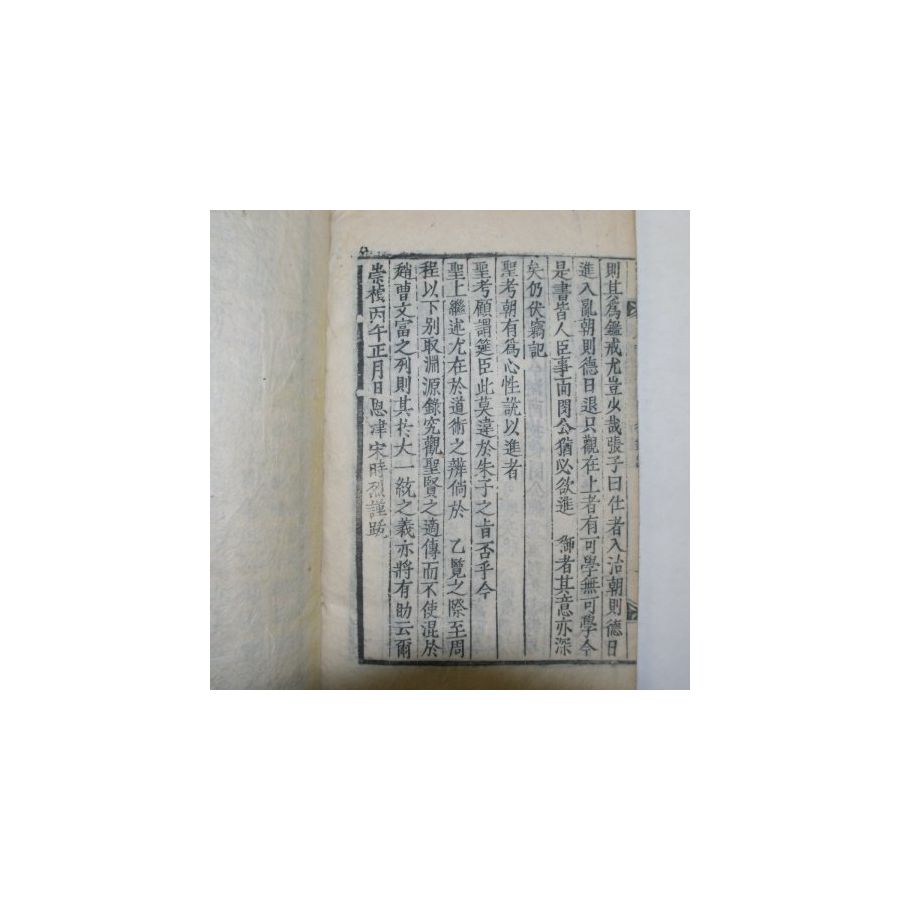 則其爲鑑戒尤豈少哉張子曰仕者入治朝則德日
進入亂朝則德日退只觀在上者有可學無可學今
是書皆人臣事而閔公猶必欲進 御者其意亦深
矣仍伏竊記
聖考朝有爲心性說以進者
聖考顧謂筵臣此莫違於朱子之旨否乎今
聖上繼述尤在於道術之辨倘於 乙覽之際至周
程以下别取淵源錄究觀聖賢之適傳而不使混於
趙曹文富之列則其於大一統之義亦將有助云爾
崇禎丙午正月日恩津宋時烈謹跋